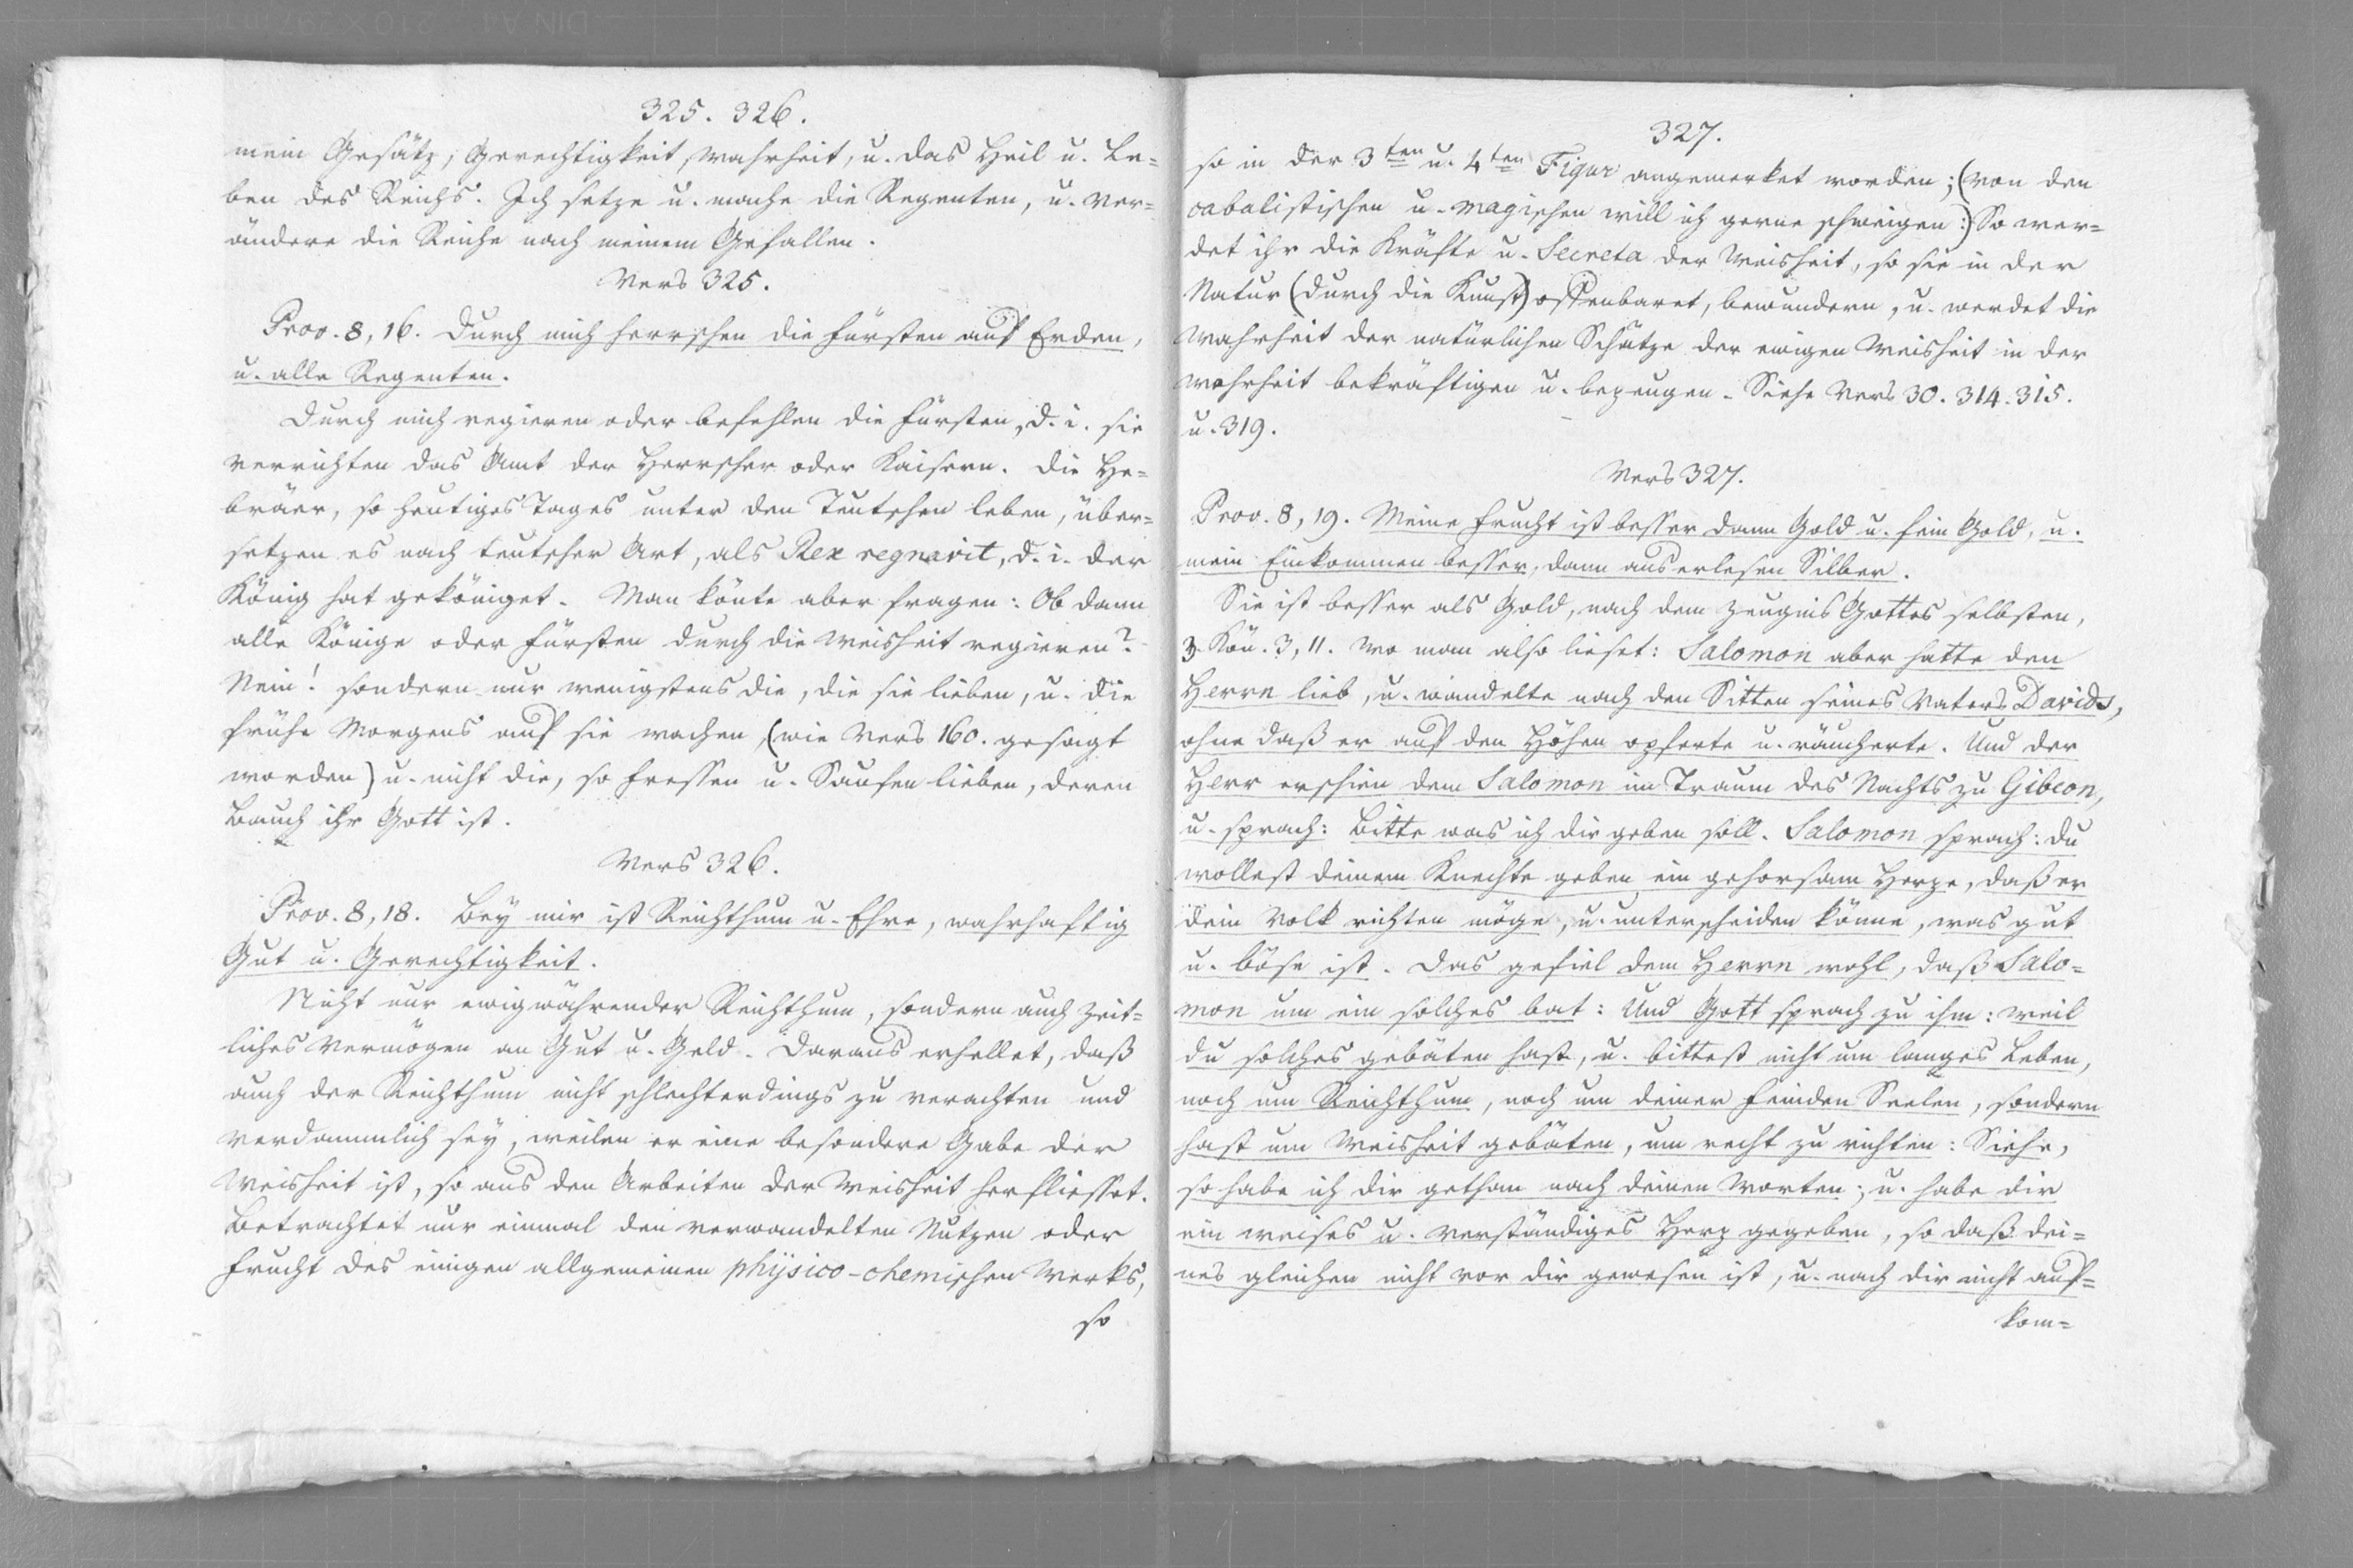 325. 326.
mein Gesätz, Gerechtigkeit, Wahrheit, u. das Heil u. Le=
ben des Reichs. Ich setze u. mache die Regenten, u. ver=
ändere die Reiche nach meinem Gefallen.
Vers 325.
Prov. 8, 16. Durch mich herrschen die Fürsten auf Erden,
u. alle Regenten.
Durch mich regieren oder befehlen die Fürsten, d. i. sie
verrichten das Amt der Herrscher oder Kaisern. Die He=
bräer, so heutiges Tages unter den Teutschen leben, über=
setzen es nach teutscher Art, als Rex regnavit, d. i. der
König hat geköniget. Man könte aber fragen: Ob dann
alle Könige oder Fürsten durch die Weisheit regieren?
Nein! sondern nur wenigstens die, die sie lieben, u. die
frühe Morgens auf sie wachen, (wie Vers 160. gesagt
worden) u. nicht die, so Fressen u. Saufen lieben, deren
Bauch ihr Gott ist.
Vers 326.
Prov. 8, 18. Bey mir ist Reichthum u. Ehre, wahrhaftig
Gut u. Gerechtigkeit.
Nicht nur ewigwährender Reichthum, sondern auch zeit=
liches Vermögen an Gut u. Geld. Daraus erhellet, daß
auch der Reichthum nicht schlechterdings zu verachten und
verdammlich sey, weilen er eine besondere Gabe der
Weisheit ist, so aus den Arbeiten der Weisheit herfliesset.
Betrachtet nur einmal den verwandelten Nutzen oder
Frucht des einigen allgemeinen physico-chemischen Werks,
so
327.
so in der 3ten u. 4ten Figur angemerket worden; (von den
cabalistischen u. magischen will ich gerne schweigen:) So wer=
det ihr die Kräfte u. Secreta der Weisheit, so sie in der
Natur (durch die Kunst) offenbaret, bewundern, u. werdet die
Wahrheit der natürlichen Schätze der ewigen Weisheit in der
Wahrheit bekräftigen u. bezeugen. Siehe Vers 30. 314. 315.
u. 319.
Vers 327.
Prov. 8, 19. Meine Frucht ist besser dann Gold u. fein Gold, u.
mein Einkommen besser, dann auserlesen Silber.
Sie ist besser als Gold, nach dem Zeugnis Gottes selbsten,
3. Kön. 3, 11. wo man also lieset: Salomon aber hatte den
Herrn lieb, u. wandelte nach den Sitten seines Vaters Davids,
ohne daß er auf den Höhen opferte u. räucherte. Und der
Herr erschien dem Salomon im Traum des Nachts zu Gibeon,
u. sprach: Bitte was ich dir geben soll. Salomon sprach: du
wollest deinem Knechte geben ein gehorsam Herze, daß er
dein Volk richten möge, u. unterscheiden könne, was gut
u. böse ist. Das gefiel dem Herrn wohl, daß Salo=
mon um ein solches bat: Und Gott sprach zu ihm: weil
du solches gebäten hast, u. bittest nicht um langes Leben,
noch um Reichthum, noch um deiner Feinden Seelen, sondern
hast um Weisheit gebäten, um recht zu richten: Siehe,
so habe ich dir gethan nach deinen Worten; u. habe dir
ein weises u. verständiges Herz gegeben, so daß dei=
nes gleichen nicht vor dir gewesen ist, u. nach dir nicht auf=
kom=